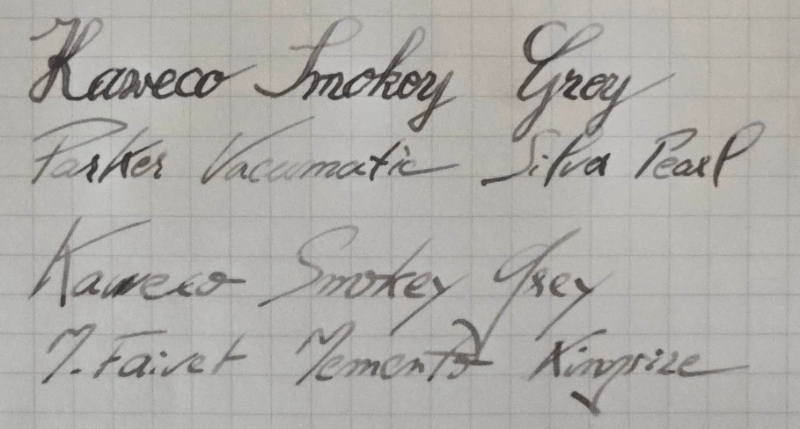 Kaweco Smokey Grey
Parker Vacumatic Silva Pearl
Kaweco Smokey Grey
M. Faivet Memento Kingsize